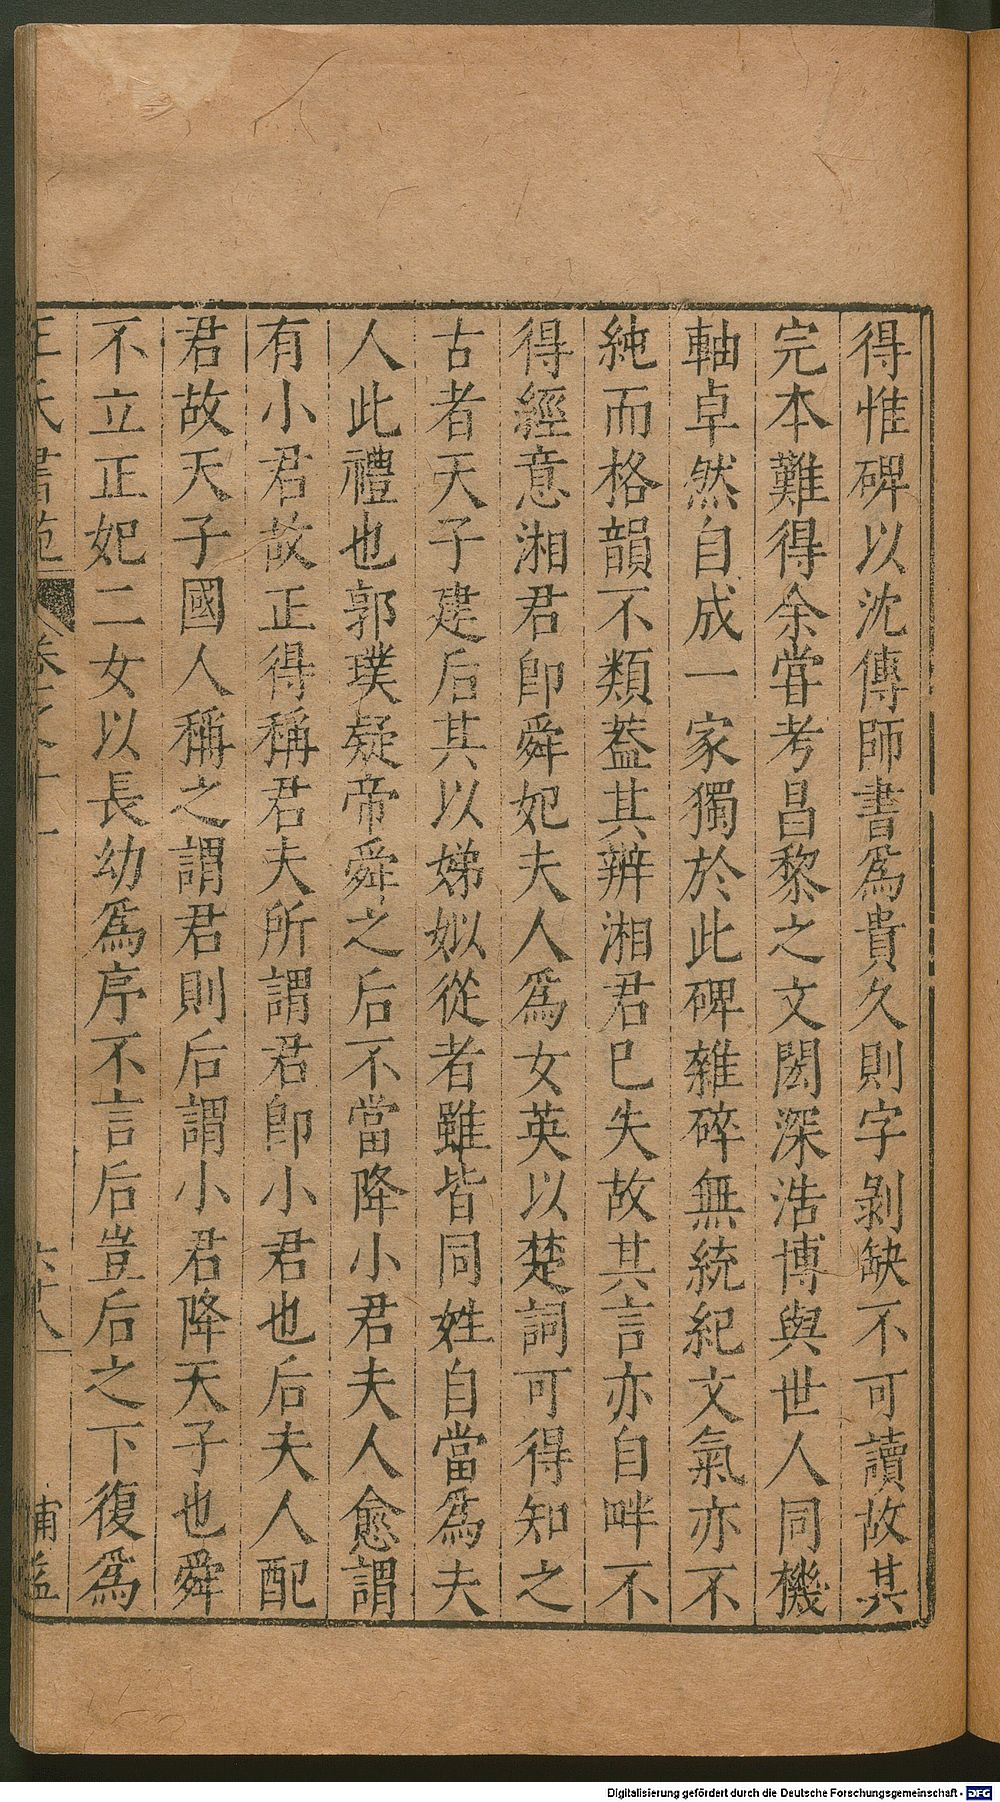 得惟碑以沈傳師書爲貴久則字剝缺不可讀故其
完本難得余甞考昌黎之文閎深浩博與世人同機
軸卓然自成一家獨於此碑雜碎無統紀文氣亦不
純而格韻不類葢其辨湘君巳失故其言亦自畔不
得經意湘君卽舜妃夫人爲女英以楚詞可得知之
古者天子建后其以娣姒從者雖皆同姓自當爲夫
人此禮也郭璞疑帝舜之后不當降小君夫人愈謂
有小君故正得稱君夫所謂君卽小君也后夫人配
君故天子國人稱之謂君則后謂小君降天子也舜
不立正妃二女以長幼爲序不言后豈后之下復爲
王氏書苑 卷之十一 六十八 補益
Digitalisierung gefördert durch die Deutsche Forschungsgemeinschaft - DFG